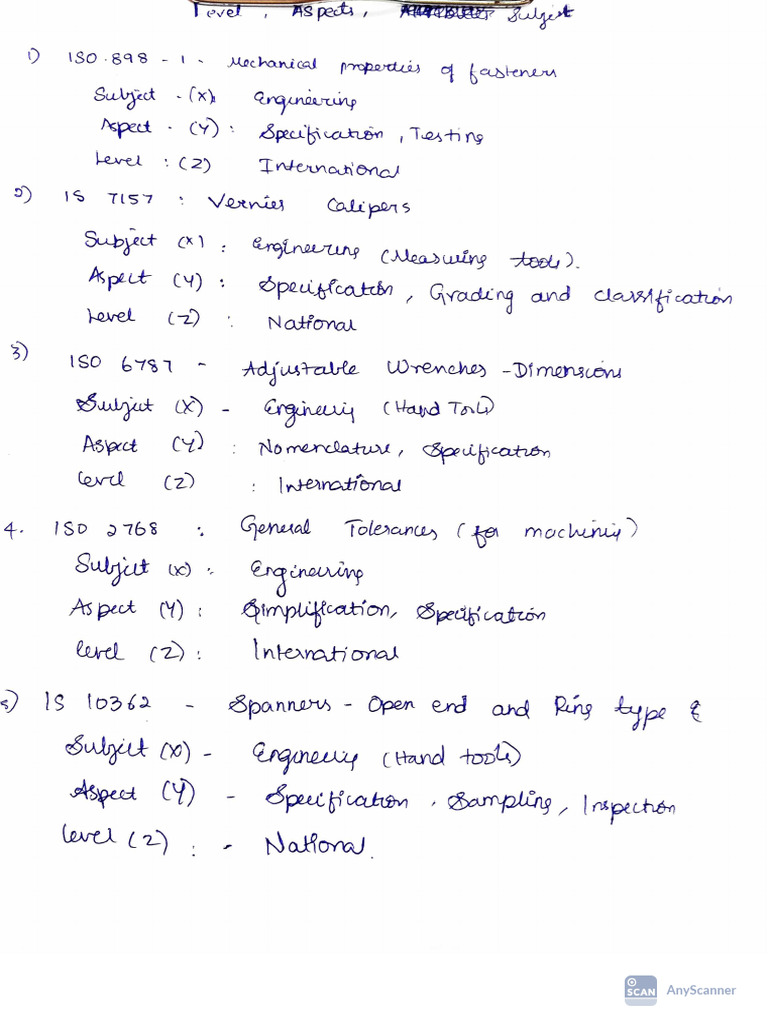 Level, Aspects, Subject
1) ISO.898 - 1 - Mechanical properties of fasteners
Subject - (X), Engineering
Aspect - (Y) : Specification, Testing
Level : (Z) International
2) IS 7157 : Vernies Calipers
Subject (X) : Engineering (Measuring tools).
Aspect (Y) : Specification, Grading and classification
Level (Z) : National
3) ISO 6787 - Adjustable Wrenches - Dimensions
Subject (X) - Engineering (Hand Tools)
Aspect (Y) : Nomenclature, Specification
Level (Z) : International
4. ISO 2768 : General Tolerances (for machining)
Subject (X) : Engineering
Aspect (Y) : Simplification, Specification
Level (Z) : International
5) IS 10362 - Spanners - Open end and Ring type &
Subject (X) - Engineering (Hand tools)
Aspect (Y) - Specification, Sampling, Inspection
Level (Z) : - National.
SCAN AnyScanner